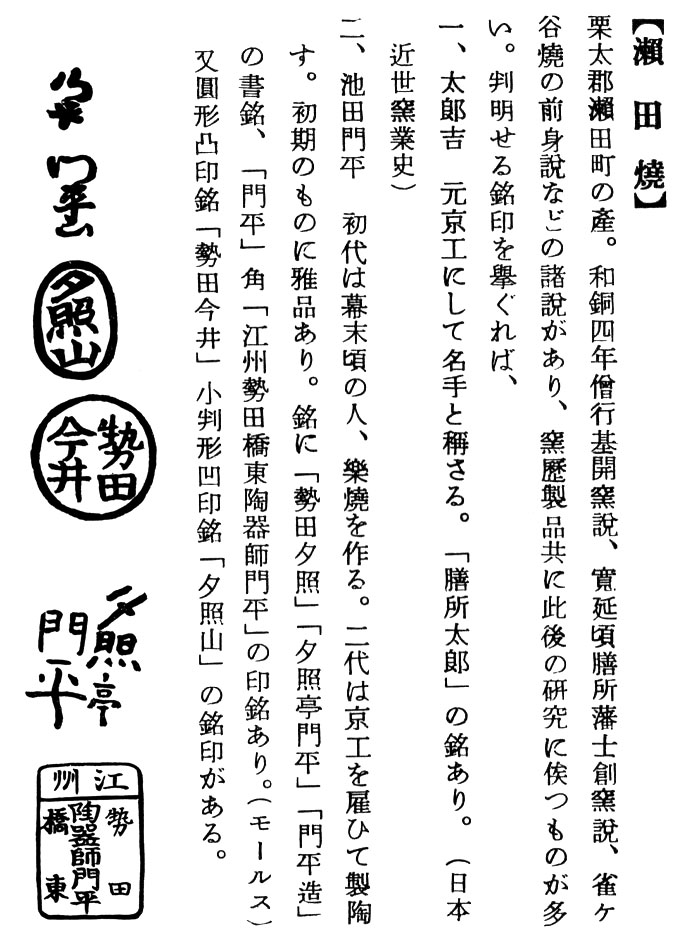 【瀨田燒】
栗太郡瀨田町の產。和銅四年僧行基開窯說、寬延頃膳所藩士創窯說、雀ヶ
谷燒の前身說などの諸說があり、窯歷製品共に此後の硏究に俟つものが多
い。判明せる銘印を擧ぐれば、
一、太郞吉　元京工にして名手と稱さる。「膳所太郎」の銘あり。（日本
近世窯業史）
二、池田門平　初代は幕末頃の人、樂燒を作る。二代は京工を雇ひて製陶
す。初期のものに雅品あり。銘に「勢田夕照」「夕照亭門平」「門平造」
の書銘、「門平」角「江州勢田橋東陶器師門平」の印銘あり。（モールス）
又圓形凸印銘「勢田今井」小判形凹印銘「夕照山」の銘印がある。
夕照山
勢田
今井
夕照亭
門平
江州
勢田
陶器師門平
橋東